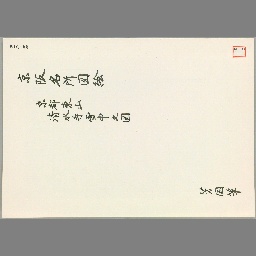 京阪名所図絵
京都東山
清水寺雪中之図
芳国筆